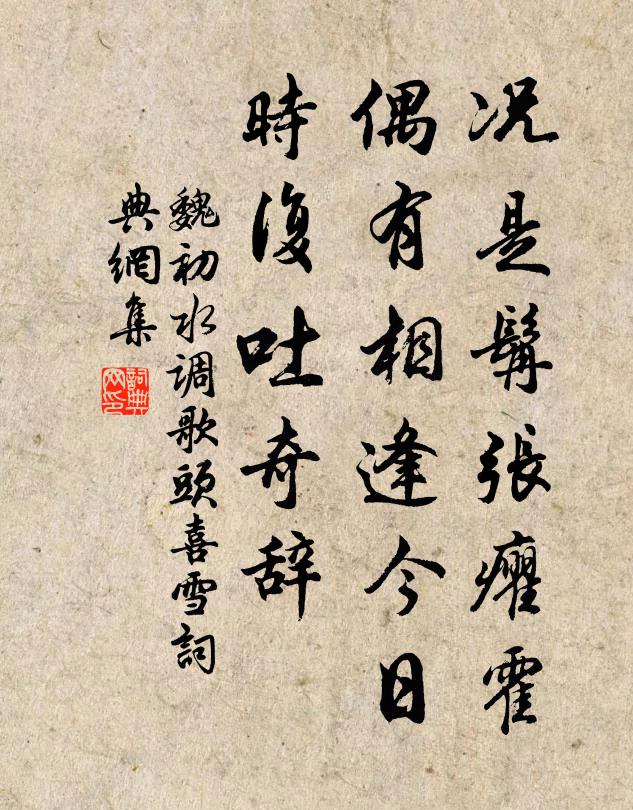 况是髯張癯霍
偶有相逢今日
時復吐奇辞
魏初水调歌頭喜雪詞
典網集
詞典网印